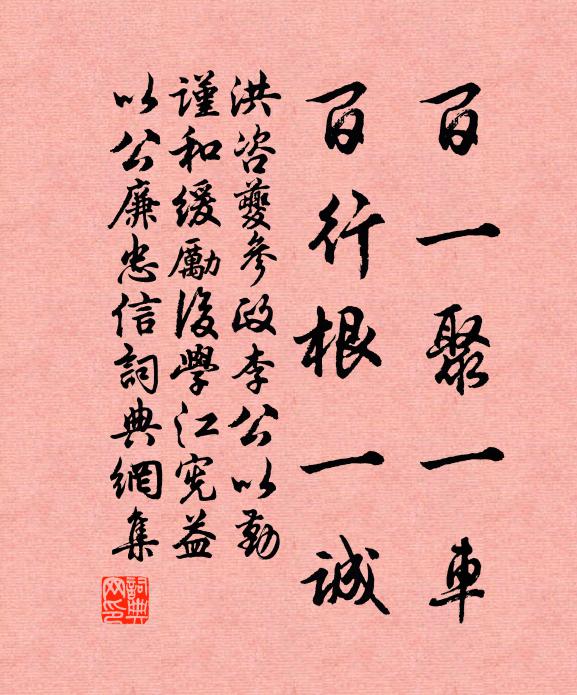 百一聚一車
百行根一誠
洪咨夔參政李公以勤
謹和緩勵後學江寃益
以公廉忠信詞典網集
詞典
网印